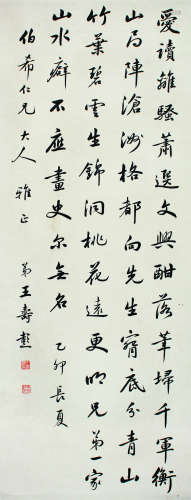 愛讀離騷蕭選文興酣落筆掃千軍衡
山局陣滄洲格都向先生窗底分青山
竹葉碧雲生錦洞桃花遠更明兄弟一家
山水癖不應畫史尔無名 乙卯長夏
伯希仁兄大人雅正 弟王壽彭